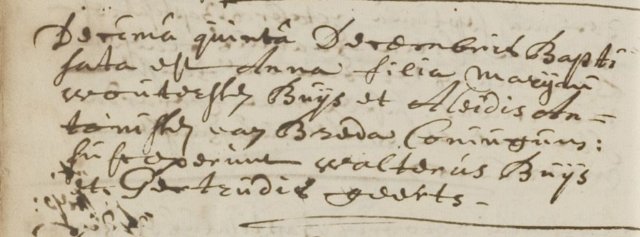 Decima quinta Decembris Bapti
sata est Anna filia Marijni
Woutersen Buijs et Aleidis An=
tonissen van Breda Coniugum:
susceperunt Walterus Buijs
et Gertrudis geerts -